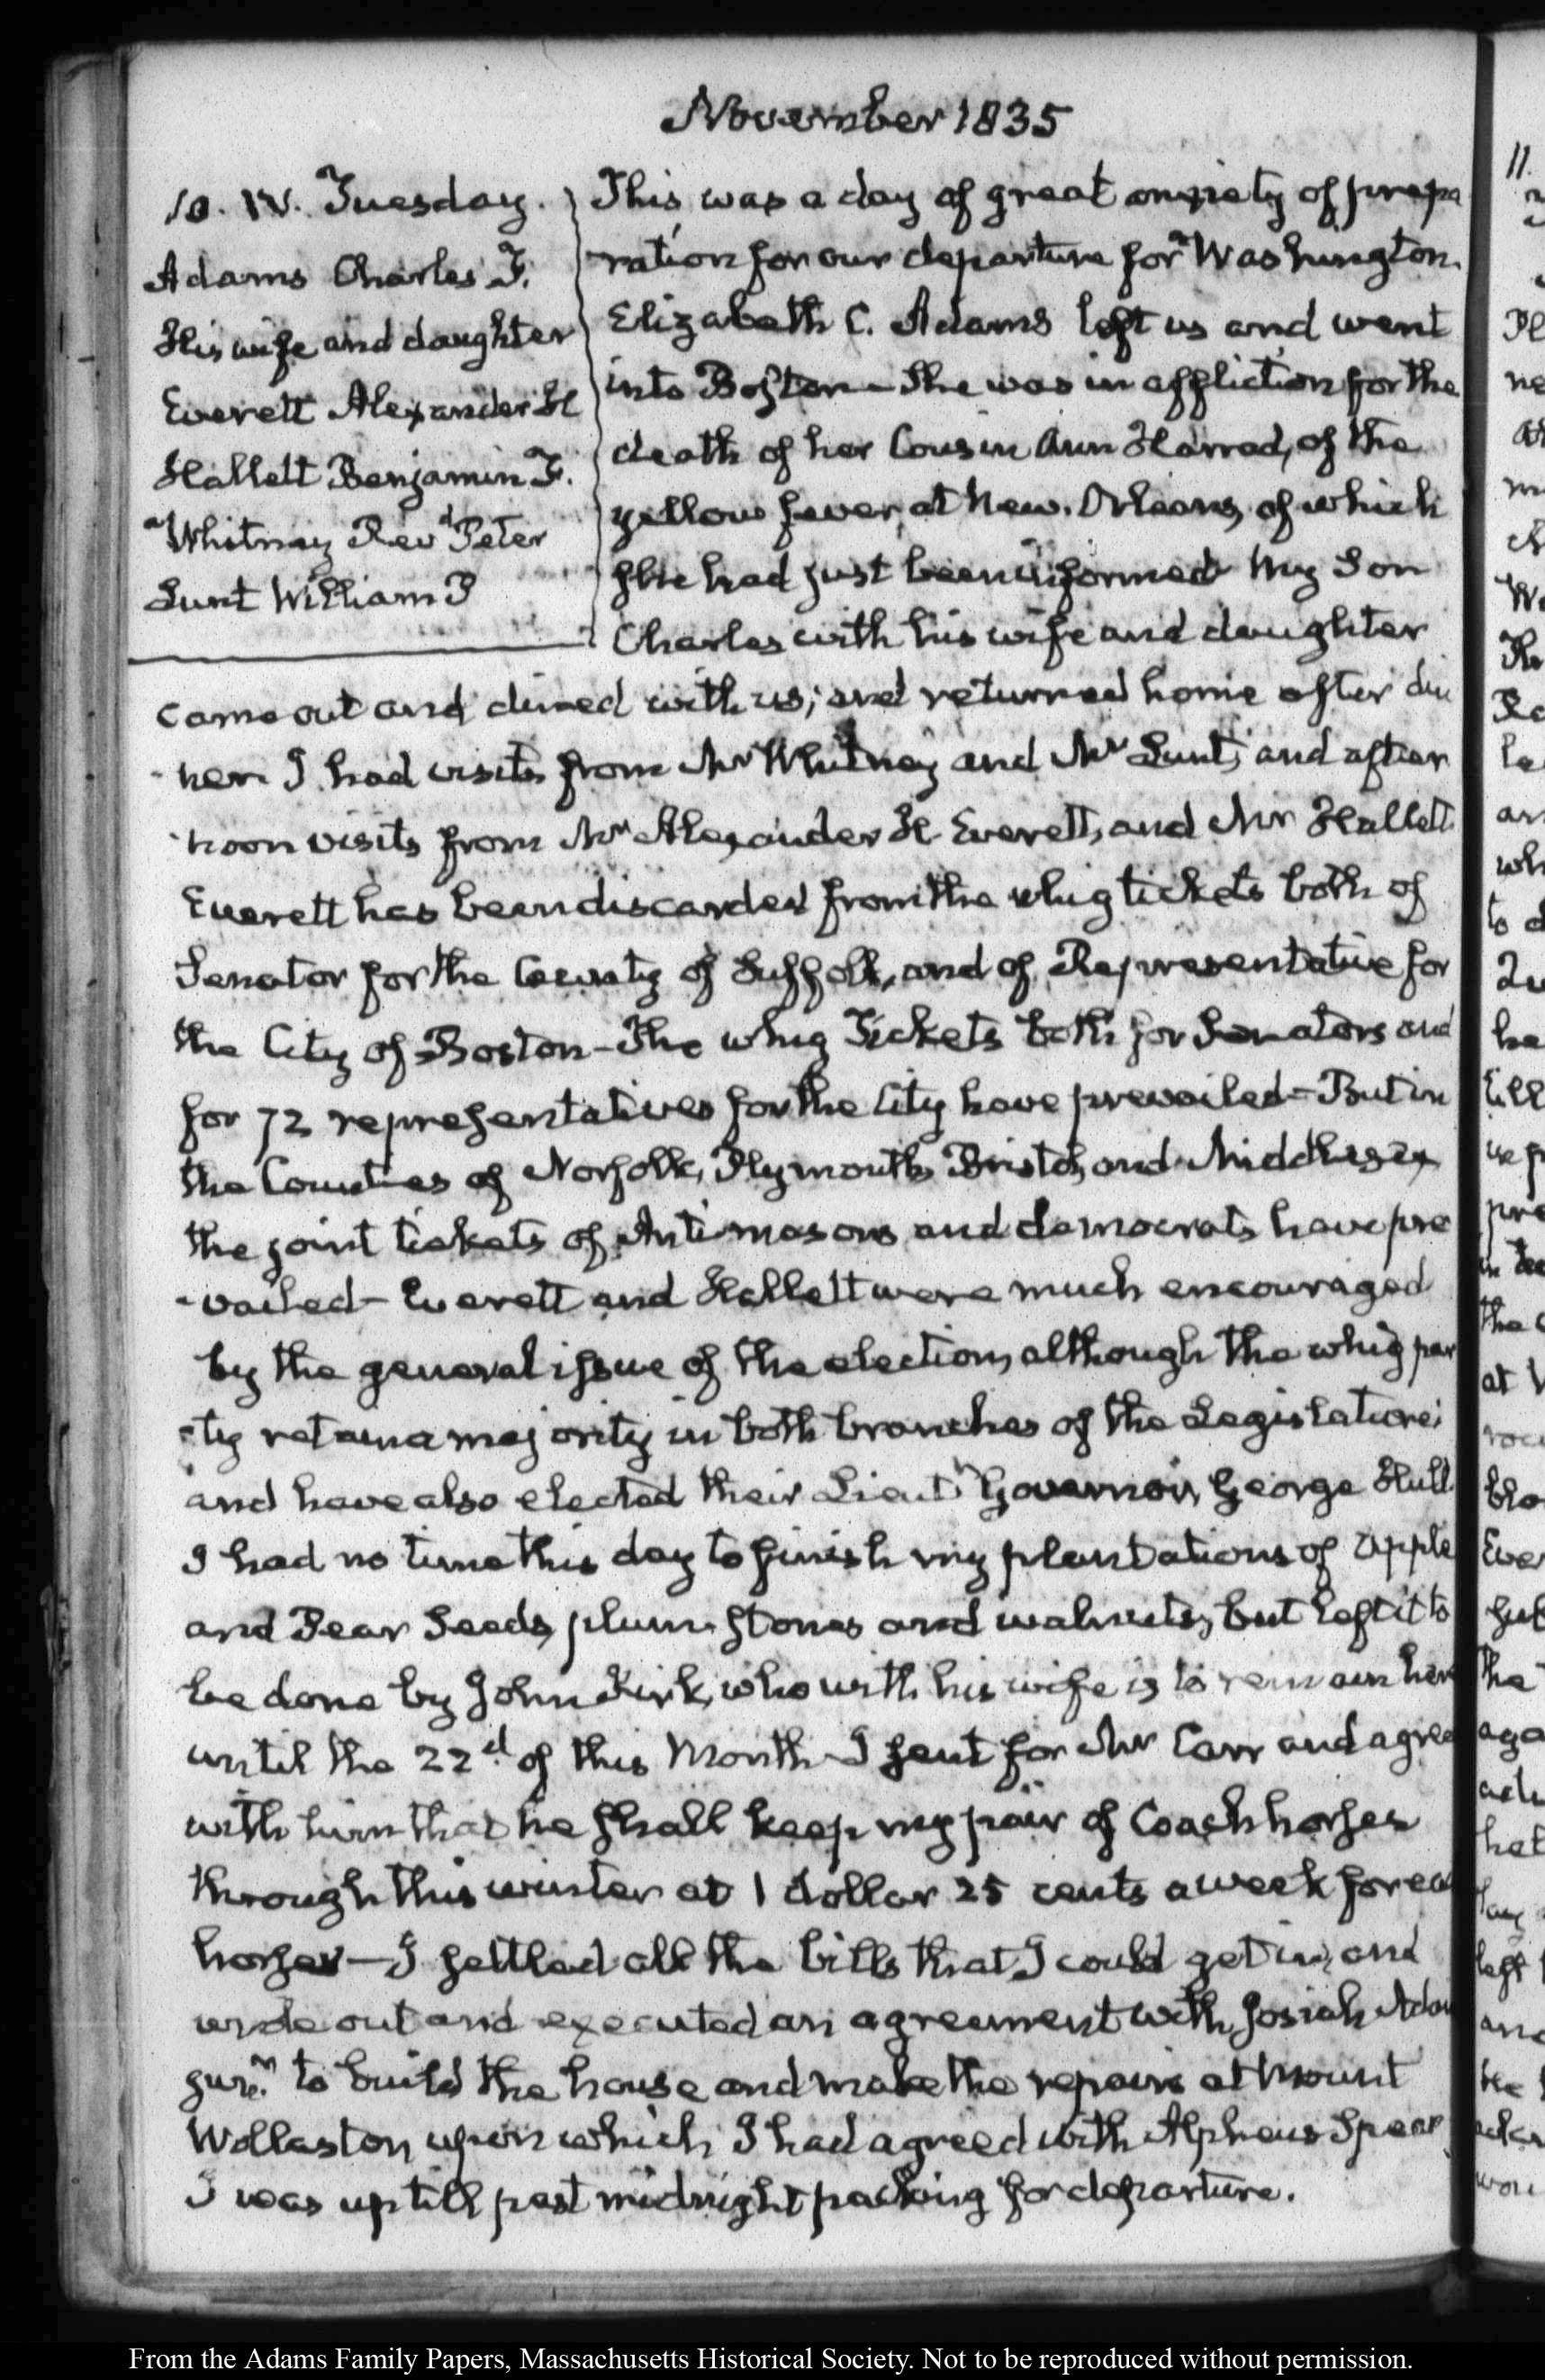 November 1835
10. IV. Tuesday.
Adams Charles F.
His wife and daughter
Everett Alexander H
Hallett Benjamin F.
Whitney Revd Peter
Lunt William P
This was a day of great anxiety of prepa
ration for our departure for Washington.
Elizabeth C. Adams left us and went
into Boston - She was in affliction for the
death of her Cousin Ann Harrod, of the
yellow fever, at New. Orleans, of which
she had just been informed My Son
Charles with his wife and daughter
came out and dined with us; and returned home after din
-ner I had visits from Mr Whitney and Mr Lunt; and after
-noon visits from Mr Alexander H Everett, and Mr Hallett
Everett has been discarded from the whig tickets both of
Senator for the County of Suffolk, and of Representative for
the City of Boston - The whig Tickets both for Senators and
for 72 representatives for the City have prevailed - But in
the Counties of Norfolk, Plymouth, Bristol, and Middlesex
the joint tickets of Antimasons and democrats have pre
-vailed - Everett and Hallett were much encouraged
by the general issue of the election, although the whig par
-ty retain a majority in both branches of the Legislature;
and have also elected their Lieutt Governor, George Hull.
I had no time this day to finish my plantations of apple
and Pear Seeds, plum stones and walnuts, but left it to
be done by John Kirk, who with his wife is to remain here
until the 22d. of this Month - I sent for Mr Carr and agree
with him that he shall keep my pair of Coach horses
through this winter at 1 dollar 25 cents a week for ea
horses — I settled all the bills that I could get in, and
wrote out and executed an agreement with Josiah Adam
junr. to build the house and make the repairs at Mount
Wollaston, upon which I had agreed with Alpheus Spear
I was up till past midnight packing for departure.
11.
From the Adams Family Papers, Massachusetts Historical Society. Not to be reproduced without permission.